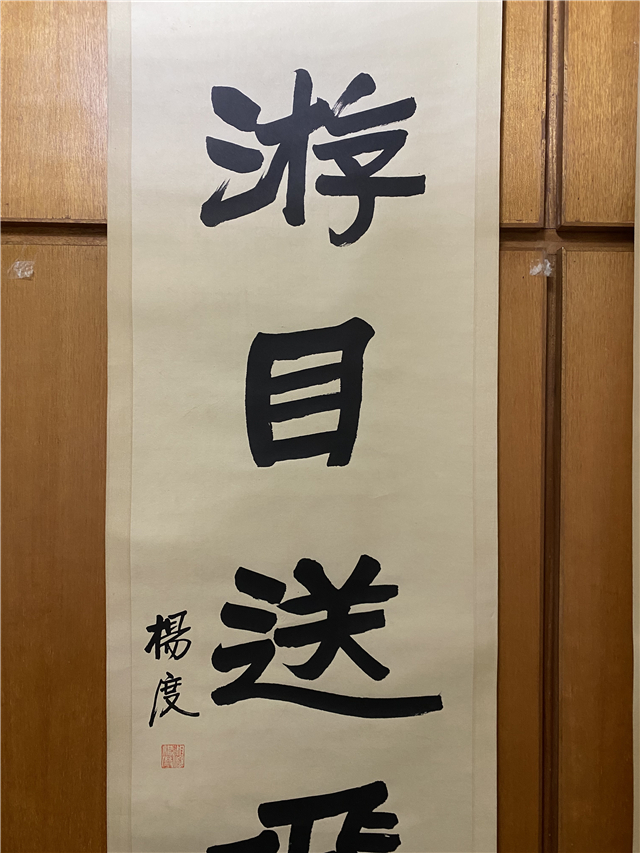 游目送
楊度